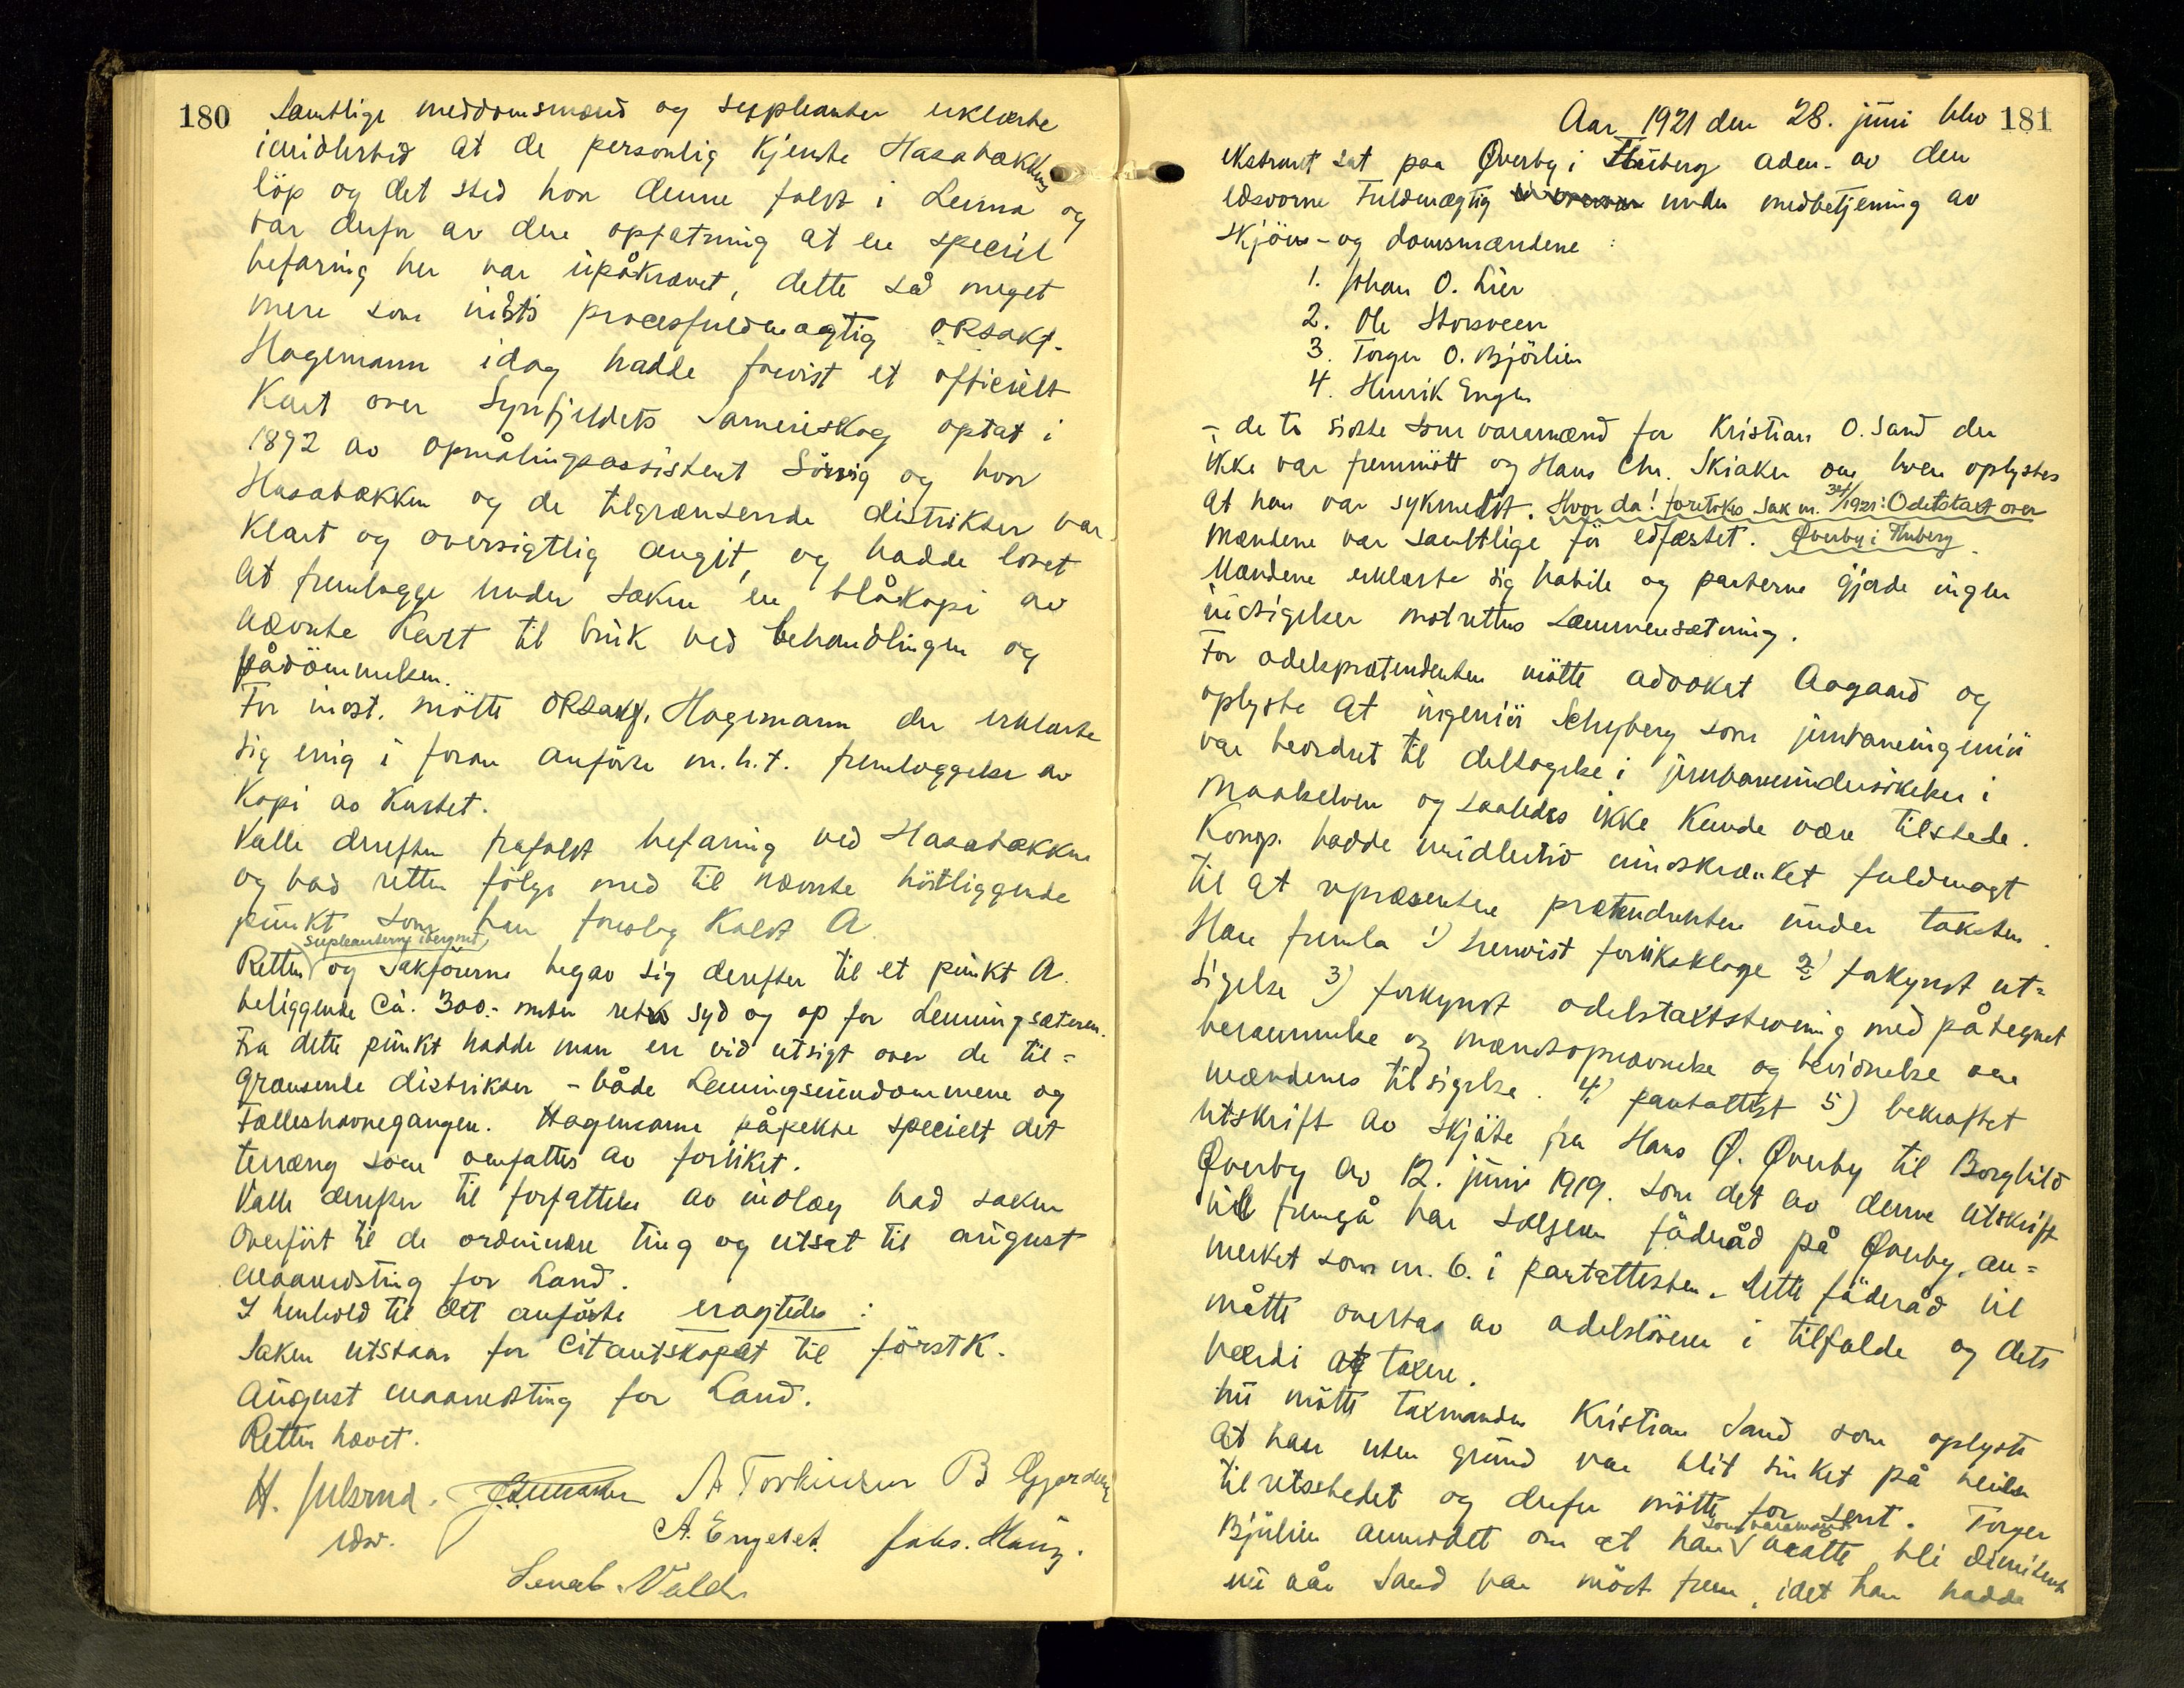 180
Samtlige meddomsmænd og suppleanter erklærte
imidlertid at de personlig kjente Hasabækkens
løp og det sted hvor denne faldt i Lenna og
var derfor av den opfatning at en speciel
befaring her var upåkrævet, dette så meget
mere som indst's procesfuldmægtig ORSakf.
Hagemann idag hadde forevist et officielt
Kart over Synfjeldets Sameieskog optat i
1892 av opmålingsassistent Sørvig og hvor
Hasabækken og de tilgrænsende distrikter var
klart og oversigtlig angit, og hadde lovet
at fremlægge under saken en blåkopi av
nævnte Kart til bruk ved behandlingen og
pådømmelsen.
For inst. møtte ORSakf. Hagemann der erklærte
sig enig i foran anførte m.h.t. fremlæggelse av
Kopi av Kartet.
Valle derefter frafaldt befaring ved Hasabækken
og bad retten følge med til nævnte høitliggende
punkt som han foreslog Kaldt A.
supleanterne iberegnet
Retten og Sakførerne begav sig derefter til et punkt A.
beliggende ca. 300.- meter ret syd og op for Lenningsæteren.
Fra dette punkt hadde man en vid utsigt over de til=
grænsende distrikter - både Lenningseiendommene og
Fælleshavnegangen. Hagemann påpekte specielt det
terræng som omfattes av forliket.
Valle derefter til forfattelse av indlæg bad saken
overført til de ordinære ting og utsat til august
maanedsting for Land.
I henhold til det anførte eragtedes :
Saken utstaar for Citantskapet til førstk.
August maanedsting for Land.
Retten hævet.
H. Julsrud. A Torkinsen B Gjerdeng
edsv. A. Engeset. Johs. Haug.
Lenab. Valdr
Aar 1921 den 28. juni blev 181
ekstraret sat paa Øverby i Thiberg aden- av den
edsvorne Fuldmægtig under medbetjening av
skjøns- og domsmændene :
1. Johan O. Lier
2. Ole Storsveen
3. Torger O. Bjørlien
4. Henrik Engen
- de to sidste som varamænd for Kristian O. Sand der
ikke var fremmøtt og Hans Chr. Skiaker om hvem oplystes
at han var sykmeldt. Hvor da! foretokes Sak nr. 34/1921: Odelstakst over
Mændene var samtlige før edfæstet. Øverby i Thiberg.
Mændene erklærte sig habile og parterne gjorde ingen
indsigelser mot rettens sammensætning.
For odelsprætendenten møtte advokat Aagaard og
oplyste at ingeniør Schyberg som jernbaneingeniør
var beordret til deltagelse i jernbaneundersøkelser i
Maalselven og saaledes ikke Kunde være tilstede.
Komp. hadde imidlertid indskrænket fuldmagt
til at repræsentere prætendenten under taksten.
Han fremla 1) henvist forliksklage 2) forkynt ut=
sigelse 3) forkynt odelstakststevning med påtegnet
berammelse og mændsopnævnelse og bevidnelse om
mændenes tilsigelse. 4) pantattest 5) bekræftet
utskrift av skjøte fra Hans Ø. Øverby til Borghild
Øverby av 12. juni 1919. Som det av denne utskrift
vil fremgå har sælgeren føderåd på Øverby, an=
merket som nr. 6. i pantattesten. Dette føderåd vil
måtte overtas av odelsløseren i tilfælde og dets
værdi at taxere.
Nu møtte taxmanden Kristian Sand som oplyste
at han uten grund var blit sinket på veien
til retsstedet og derfor møtte for sent. Torger
som varamand
Bjørlien anmodet om at han maatte bli dimitert
nu når Sand var mødt frem, idet han hadde